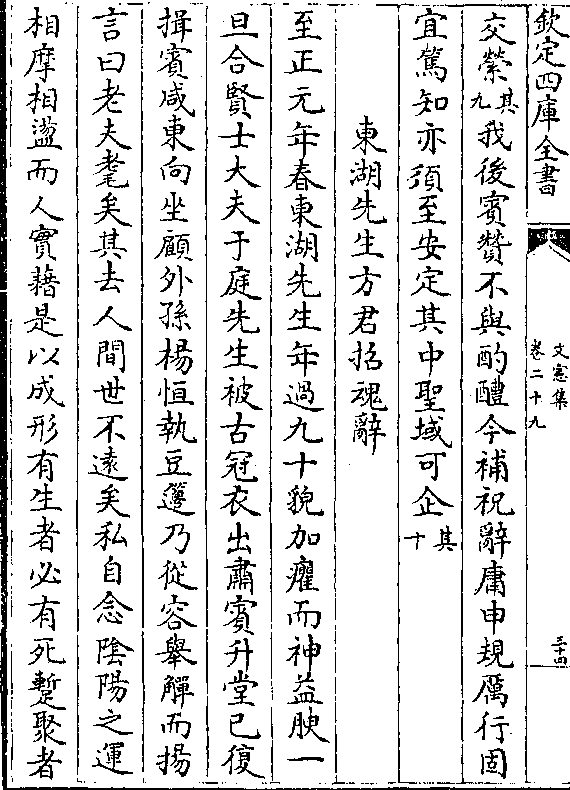 欽定四庫全書
文憲集
卷二十九
三十四
交縈其九我後賓贊不與酌醴今補祝辭庸申規厲行固
宜篤知亦須至安定其中聖域可企其十
東湖先生方君招魂辭
至正元年春東湖先生年過九十貌加癯而神益腴一
旦合賢士大夫于庭先生被古冠衣出肅賓升堂已復
揖賓咸東向坐顧外孫楊恒執豆籩乃從容舉觶而揚
言曰老夫耄矣其去人間世不遠矣私自念陰陽之運
相摩相盪而人實藉是以成形有生者必有死蹔聚者